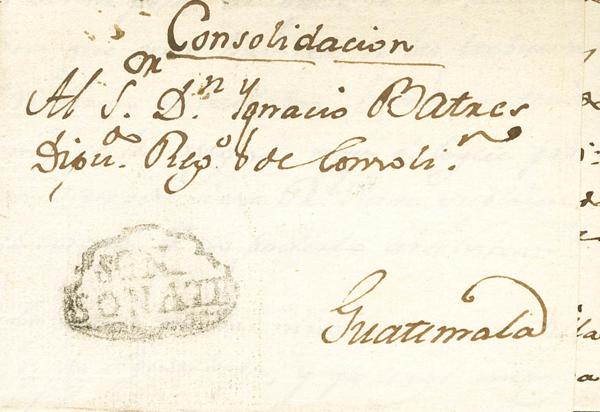 Consolidacion
Al S.or Dn. Ygnacio Batres
Dipu.do Reg.o de Consoli.n
Guatemala